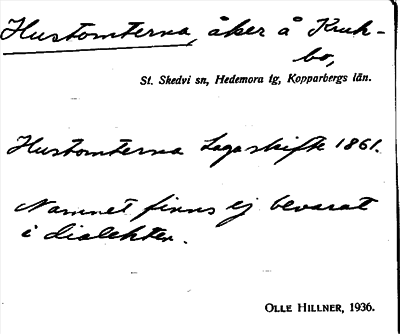 Hustomterna, åker å Kruk-
bo,
St. Skedvi sn, Hedemora tg, Kopparbergs län.
Hustomterna Laga skifte 1861.
Namnet finns ej bevarat
i dialekten.
OLLE HILLNER, 1936.